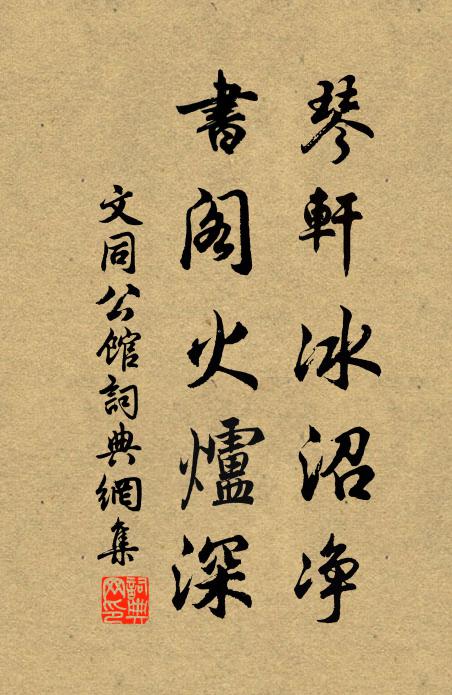 琴軒冰沼净
書閣火爐深
文同公館詞典網集
詞典網印